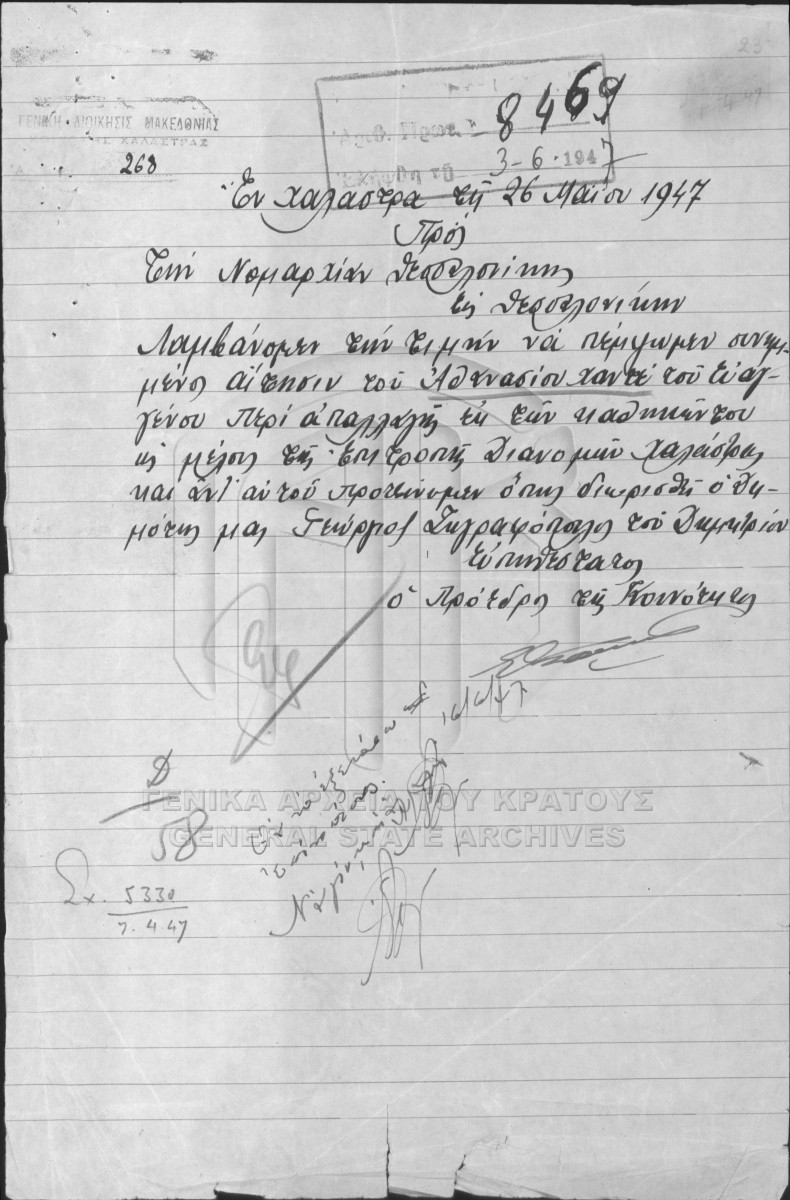 23
ΓΕΝΙΚΗ ΔΙΟΙΚΗΣΙΣ ΜΑΚΕΔΟΝΙΑΣ
ΧΑΛΑΣΤΡΑΣ
268
Αριθ. Πρωτ. 8469
Ελήφθη τῇ 3-6-1947
Ἐν Χαλάστρᾳ τῇ 26 Μαΐου 1947
Πρός
Τὴν Νομαρχίαν Θεσσαλονίκης
εἰς Θεσσαλονίκην
Λαμβάνομεν τὴν τιμὴν νὰ πέμψωμεν συνημ-
μένως αἴτησιν τοῦ Ἀθανασίου Χαντὲ τοῦ Εὐαγ-
γένου περὶ ἀπαλλαγῆς ἐκ τῶν καθηκόντων του
ὡς μέλος τῆς Ἐπιτροπῆς Διανομῶν Χαλάστρας
καὶ ἀντ' αὐτοῦ προτείνομεν ὅπως διορισθῇ ὁ δη-
μότης μας Γεώργιος Ζωγραφόπουλος τοῦ Δημητρίου
Εὐπειθέστατος
ὁ Πρόεδρος τῆς Κοινότητος
16/6/47
Δ
58
Σχ. 5330
7.4.47
ΓΕΝΙΚΑ ΑΡΧΕΙΑ ΤΟΥ ΚΡΑΤΟΥΣ
GENERAL STATE ARCHIVES